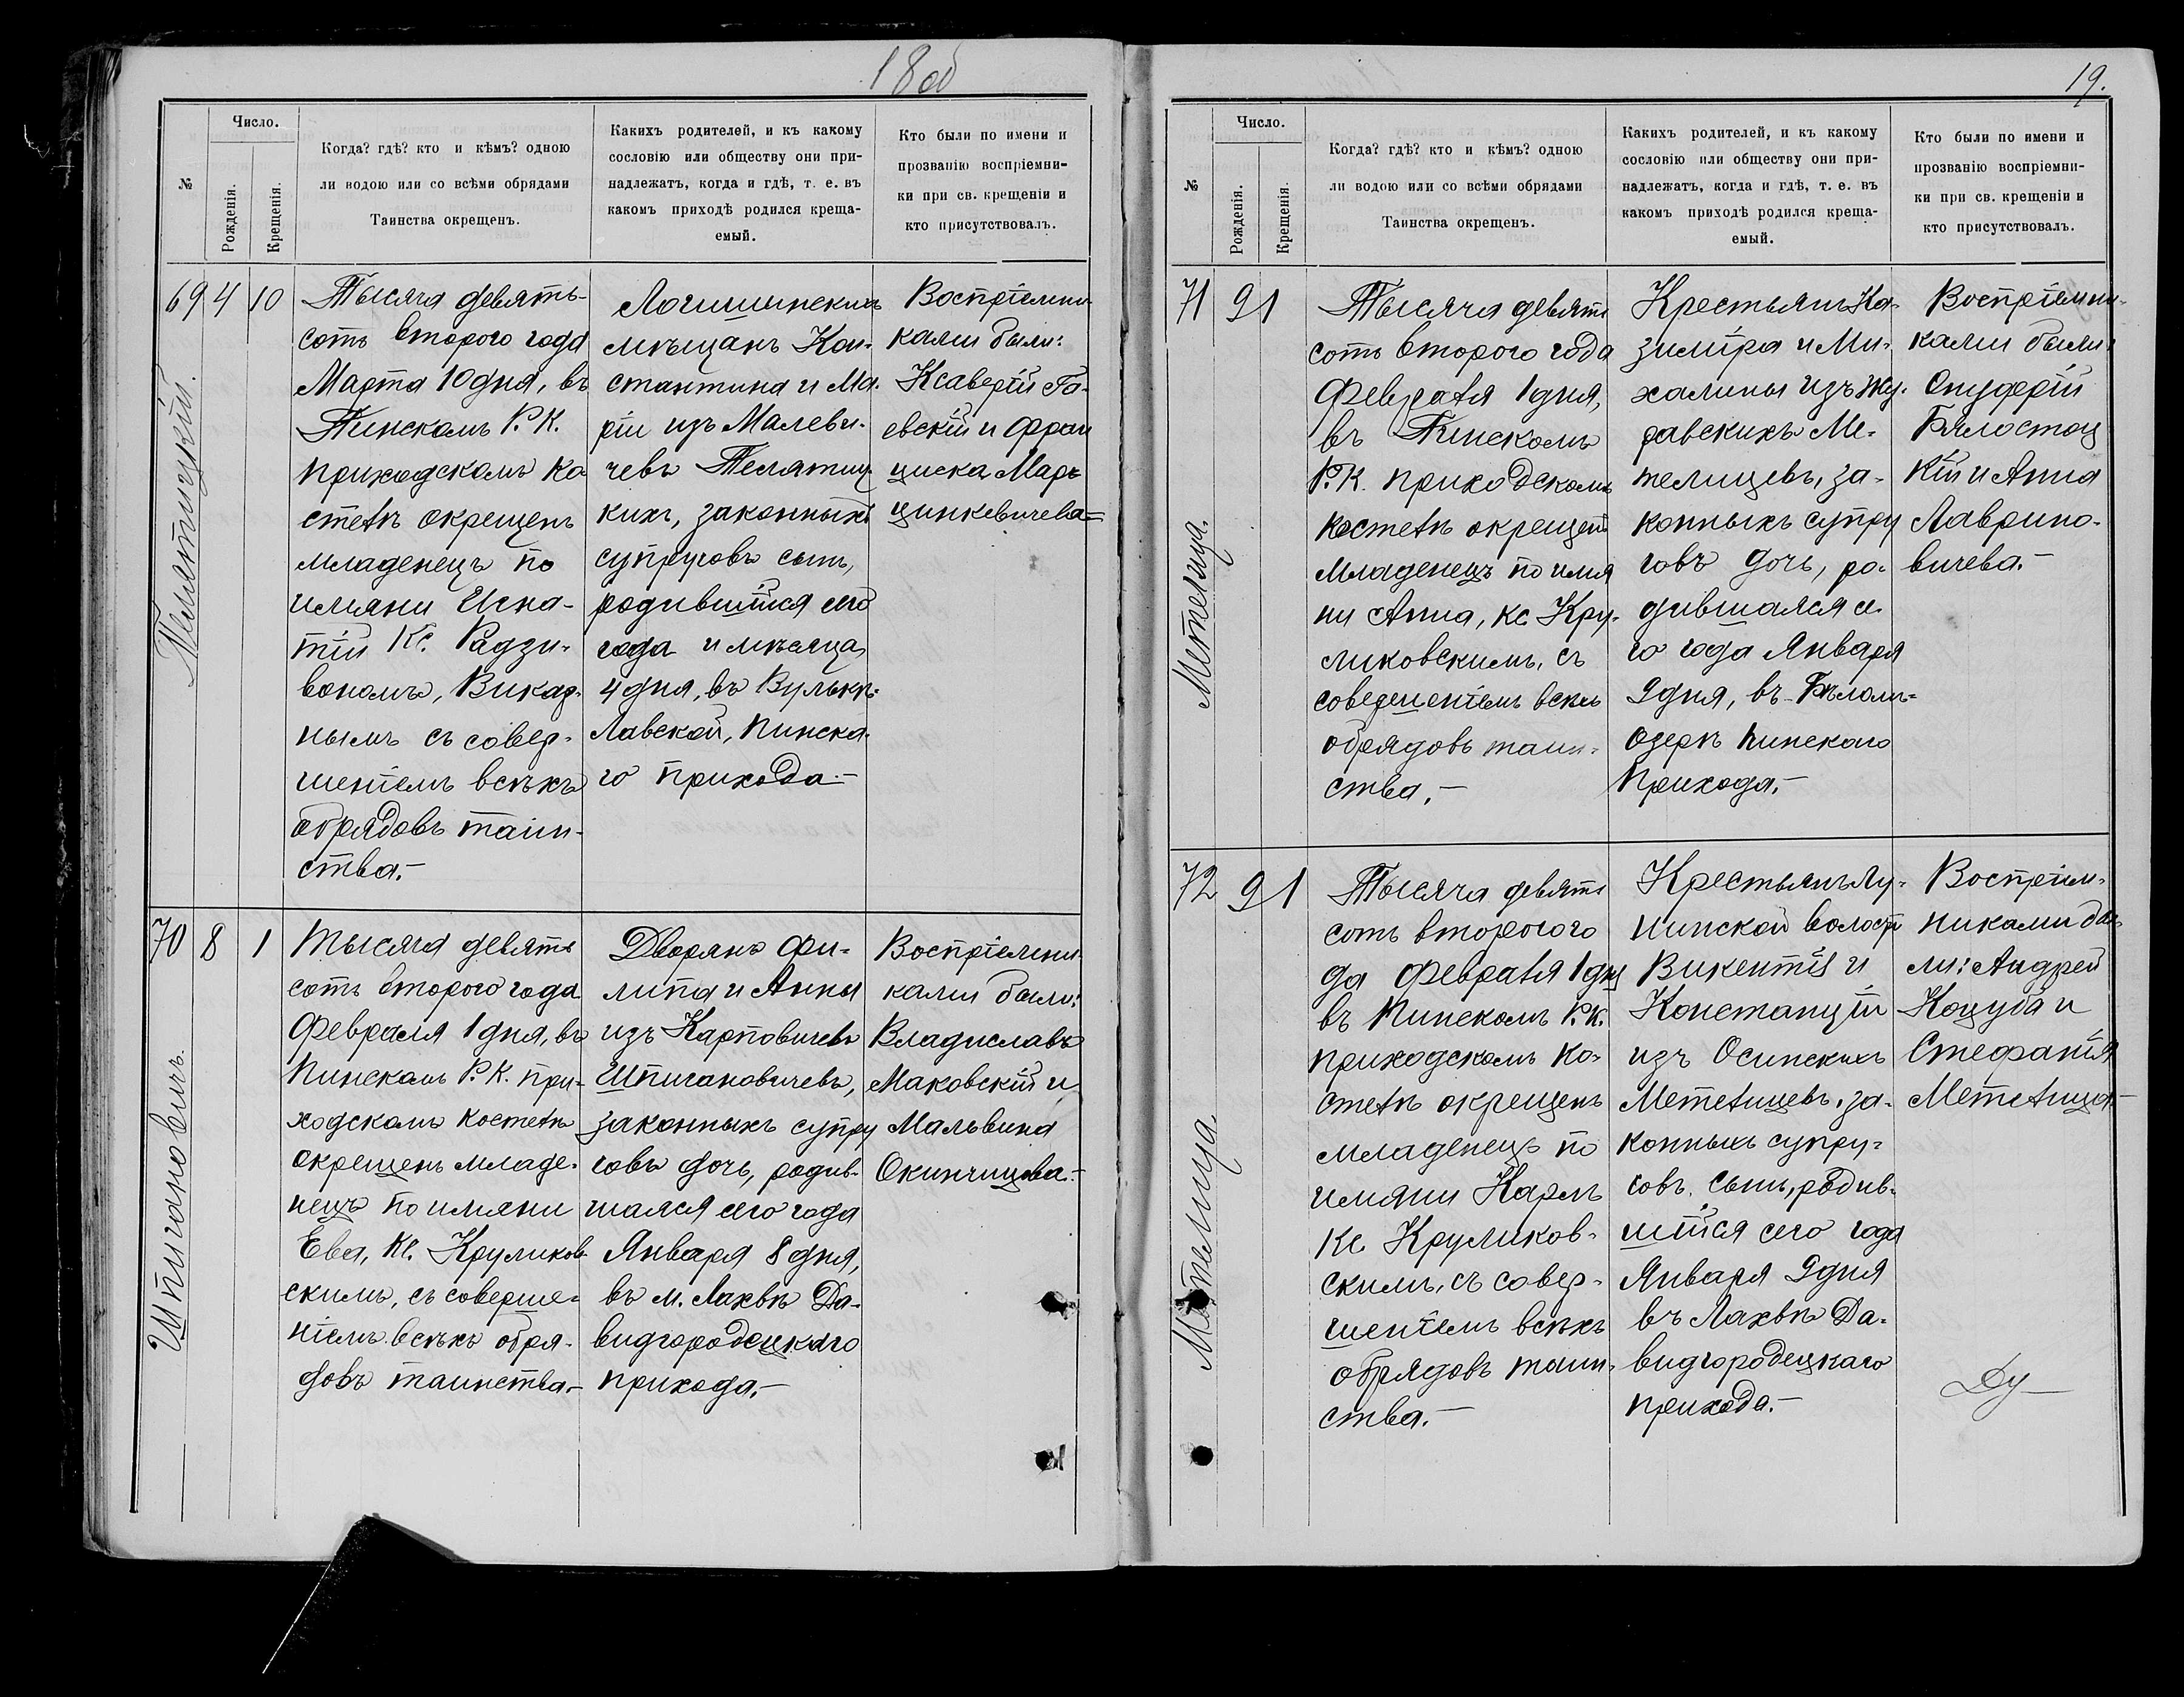 18 об
№
Число.
Рожденія.
Крещенія.
Когда? гдѣ? кто и кѣмъ? одною
ли водою или со всѣми обрядами
Таинства окрещенъ.
Какихъ родителей, и къ какому
сословію или обществу они при-
надлежатъ, когда и гдѣ, т. е. въ
какомъ приходѣ родился креща-
емый.
Кто были по имени и
прозванію воспріемни-
ки при св. крещеніи и
кто присутствовалъ.
69 4 10
Телятицкій.
Тысяча девять-
сотъ второго года
Марта 10 дня, въ
Пинскомъ Р. К.
приходскомъ ко
стелѣ окрещенъ
младенецъ по
имяни Игна-
тій Кс. Радзи-
вономъ, Викар-
нымъ съ совер-
шеніемъ всѣхъ
обрядовъ таин-
ства.-
Логишинскихъ
мѣщанъ Кон-
стантина и Ма-
ріи изъ Малеви-
чевъ Телятиц-
кихъ, законныхъ
супруговъ сынъ,
родившійся сего
года и мѣсяца
4 дня, въ Вулькѣ-
Лавской, Пинска-
го прихода.-
Воспріемни-
ками были:
Ксаверій Га-
евскій и Фран
циска Мар
цинкевичева=
70 8 1
Шпигановичъ.
Тысяча девять
сотъ второго года
Февраля 1 дня, въ
Пинскомъ Р. К. при-
ходскомъ костелѣ
окрещенъ младе-
нецъ по имяни
Ева, Кс. Круликов-
скимъ, съ соверше-
ніемъ всѣхъ обря-
довъ таинства.-
Дворянъ Фи-
липа и Анны
изъ Карповичевъ
Шпигановичевъ,
законныхъ супру
говъ дочь, родив-
шаяся сего года
Января 8 дня,
въ м. Лахвѣ Да-
видгородецкаго
прихода.-
Воспріемни-
ками были:
Владиславъ
Маковскій и
Мальвина
Окинчицова.-
19.
№
Число.
Рожденія.
Крещенія.
Когда? гдѣ? кто и кѣмъ? одною
ли водою или со всѣми обрядами
Таинства окрещенъ.
Какихъ родителей, и къ какому
сословію или обществу они при-
надлежатъ, когда и гдѣ, т. е. въ
какомъ приходѣ родился креща-
емый.
Кто были по имени и
прозванію воспріемни-
ки при св. крещеніи и
кто присутствовалъ.
71 9 1
Метелица.
Тысяча девять
сотъ второго года
Февраля 1 дня,
въ Пинскомъ
Р. К. приходскомъ
костелѣ окрещенъ
младенецъ по имя
ни Анна, кс Кру-
ликовскимъ, съ
совершеніемъ всѣхъ
обрядовъ таин-
ства.-
Крестьянъ Ка-
зиміра и Ми-
халины изъ Жу-
равскихъ Ме-
телицевъ, за-
конныхъ супру
говъ дочь, ро-
дившаяся се-
го года Января
9 дня, въ Бѣломъ-
Озерѣ Пинскаго
прихода.-
Воспріемни-
ками были:
Онуфрій
Бялостоц
кій и Анна
Лаврино-
вичева.-
72 9 1
Метелица.
Тысяча девять
сотъ второго го
да Февраля 1 дня
въ Пинскомъ Р. К.
приходскомъ ко-
стелѣ окрещенъ
младенецъ по
имяни Карлъ
Кс Круликов-
скимъ, съ совер-
шеніемъ всѣхъ
обрядовъ таин-
ства.-
Крестьянъ Лу-
нинской волости
Викентія и
Констанціи
изъ Осинскихъ
Метелицевъ, за-
конныхъ супру-
говъ сынъ, родив-
шійся сего года
Января 9 дня
въ Лахвѣ Да-
видгородецкаго
прихода.-
Воспріем-
никами бы-
ли: Андрей
Коцуба и
Стефанія
Метелица.-